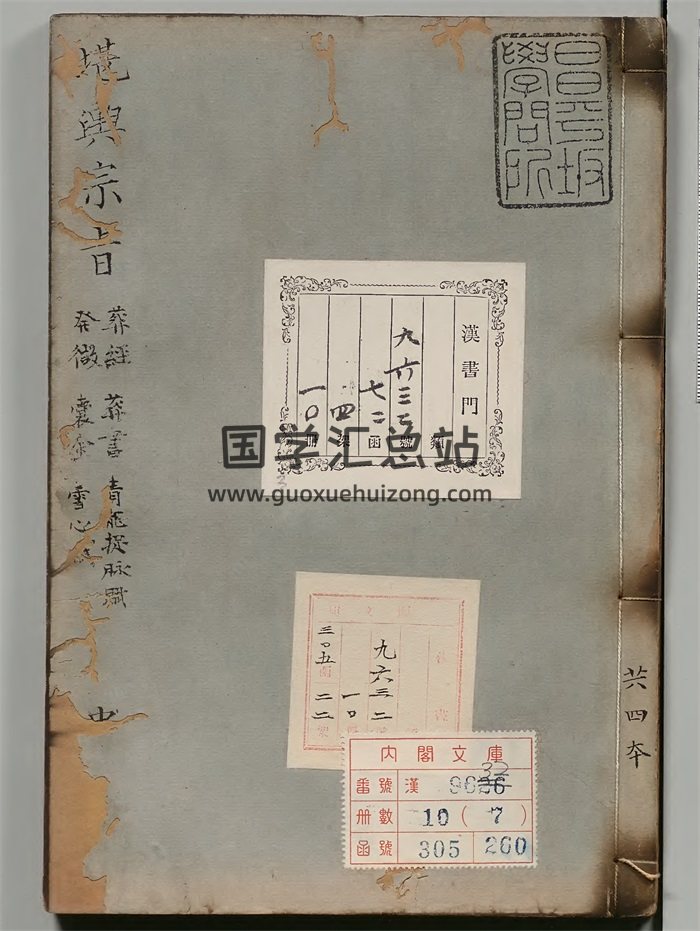 昌平坂
學問所
堪輿宗旨
葬經 葬書 青龍捉脉賦
発微 囊金 雪心
漢書門
類
九六三二號
七二函
四架
一〇冊
国学汇总站
www.guoxuehuizong.com
九六三二
一〇
三〇五
二二
内閣文庫
番號 漢 9632
冊數 10 (7)
函號 305 260
共四本